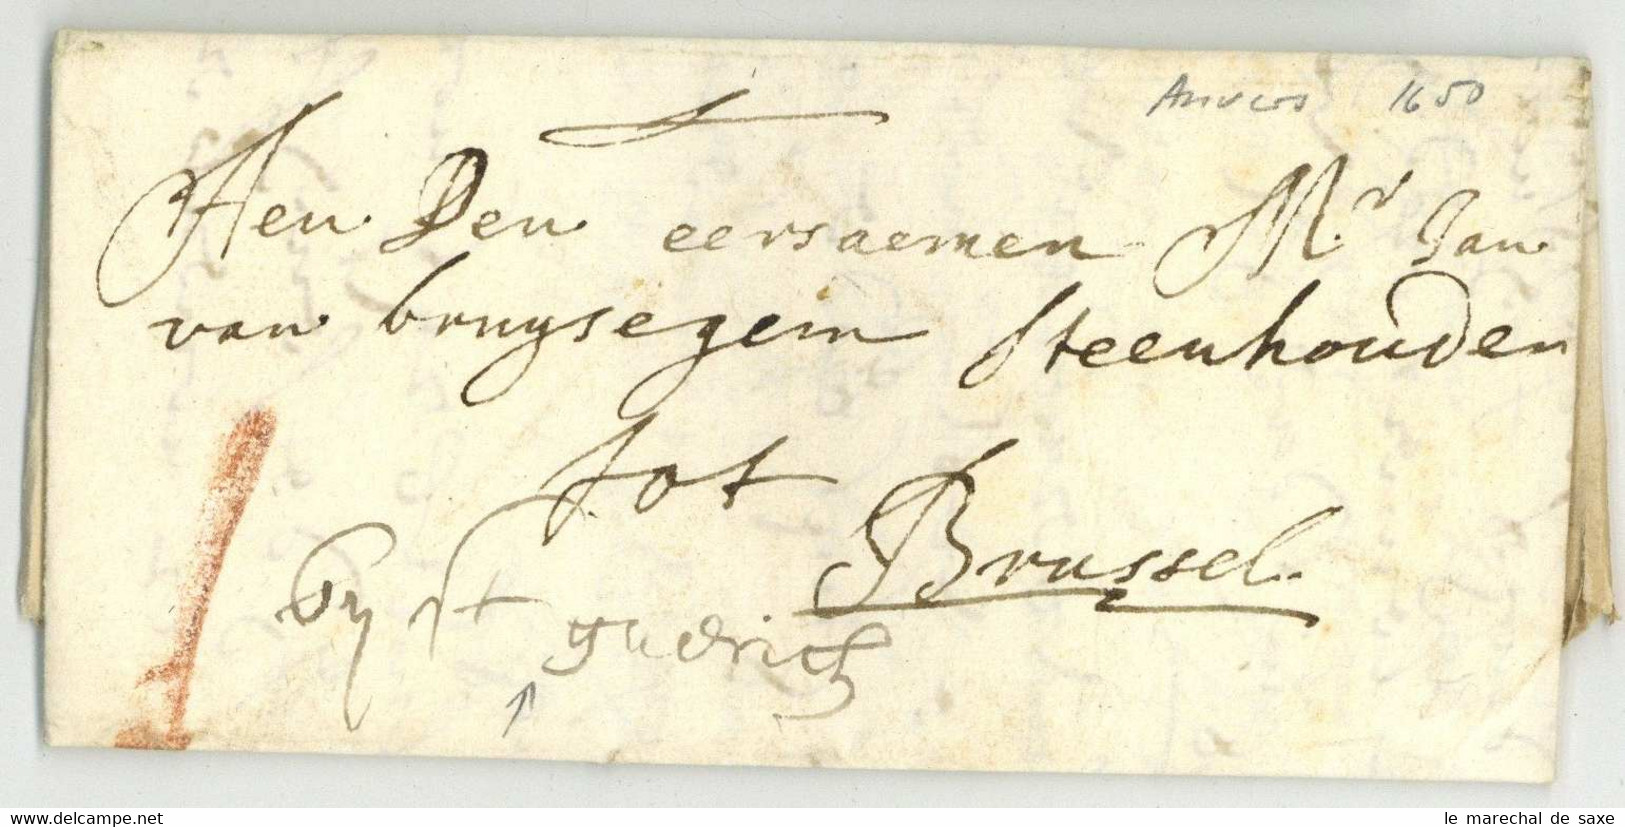 Anvers 1650
Aen Den eersaemen Mr Jan
van bruysegem Steenhouden
tot
Brussel.
by st gudrich
delcampe.net
le marechal de saxe